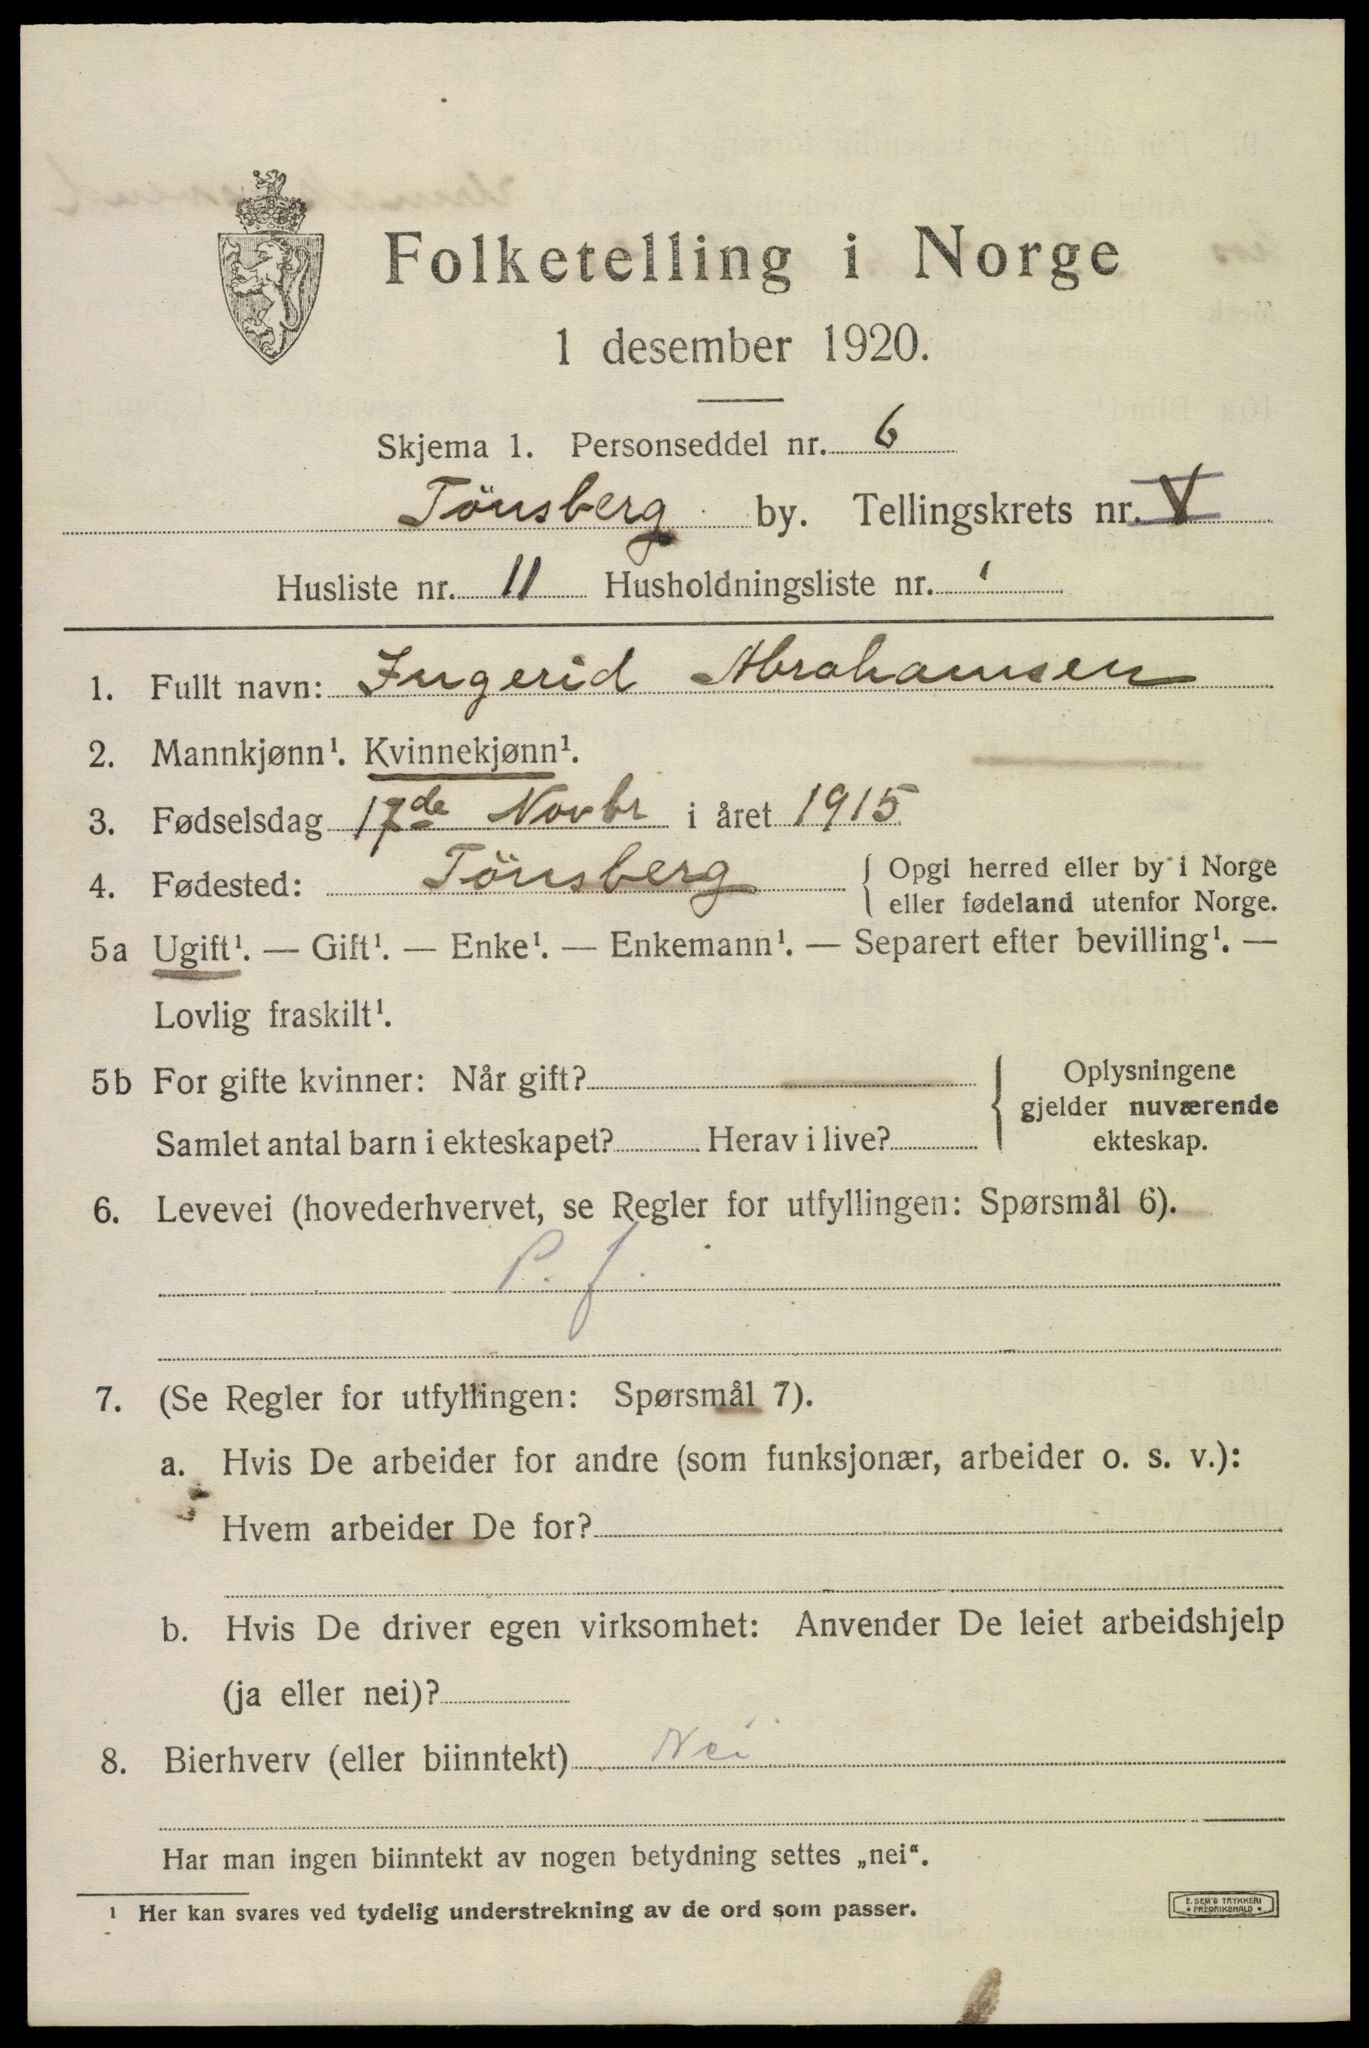 Folketelling i Norge
1 desember 1920.
Skjema 1. Personseddel nr. 6
Tönsberg by. Tellingskrets nr. V
Husliste nr. 11 Husholdningsliste nr. 1
1. Fullt navn: Ingerid Abrahamsen
2. Mannkjønn¹. Kvinnekjønn¹.
3. Fødselsdag 17de Novbr i året 1915
4. Fødested: Tönsberg { Opgi herred eller by i Norge
eller fødeland utenfor Norge.
5a Ugift¹. — Gift¹. — Enke¹. — Enkemann¹. — Separert efter bevilling¹. —
Lovlig fraskilt¹.
5b For gifte kvinner: Når gift?
Samlet antal barn i ekteskapet? Herav i live?
{ Oplysningene
gjelder nuværende
ekteskap.
6. Levevei (hovederhvervet, se Regler for utfyllingen: Spørsmål 6).
P. f.
7. (Se Regler for utfyllingen: Spørsmål 7).
a. Hvis De arbeider for andre (som funksjonær, arbeider o. s. v.):
Hvem arbeider De for?
b. Hvis De driver egen virksomhet: Anvender De leiet arbeidshjelp
(ja eller nei)?
8. Bierhverv (eller biinntekt) Nei
Har man ingen biinntekt av nogen betydning settes „nei“.
¹ Her kan svares ved tydelig understrekning av de ord som passer.
E. SEM'S TRYKKERI
• FREDRIKSHALD •